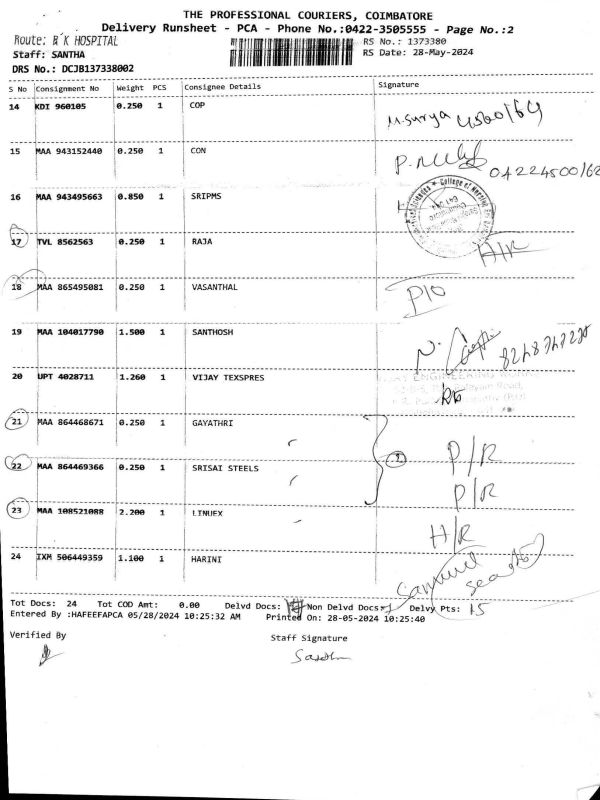 THE PROFESSIONAL COURIERS, COIMBATORE
Delivery Runsheet - PCA - Phone No.:0422-3505555 - Page No.:2
Route: R K HOSPITAL
RS No.: 1373380
Staff: SANTHA
RS Date: 28-May-2024
DRS No.: DCJB137338002
S No Consignment No Weight PCS Consignee Details Signature
14 KDI 960105 0.250 1 COP
M.Surya
15 MAA 943152440 0.250 1 CON
04224500162
16 MAA 943495663 0.850 1 SRIPMS
College of
17 TVL 8562563 0.250 1 RAJA
H/R
18 MAA 865495081 0.250 1 VASANTHAL
P/O
19 MAA 104017790 1.500 1 SANTHOSH
N.
20 UPT 4028711 1.260 1 VIJAY TEXSPRES
21 MAA 864468671 0.250 1 GAYATHRI
P/R
22 MAA 864469366 0.250 1 SRISAI STEELS
P/R
23 MAA 108521088 2.200 1 LINUEX
H/R
24 IXM 506449359 1.100 1 HARINI
Tot Docs: 24 Tot COD Amt: 0.00 Delvd Docs: Non Delvd Docs: Delvy Pts: 15
Entered By :HAFEEFAPCA 05/28/2024 10:25:32 AM Printed On: 28-05-2024 10:25:40
Verified By
Staff Signature